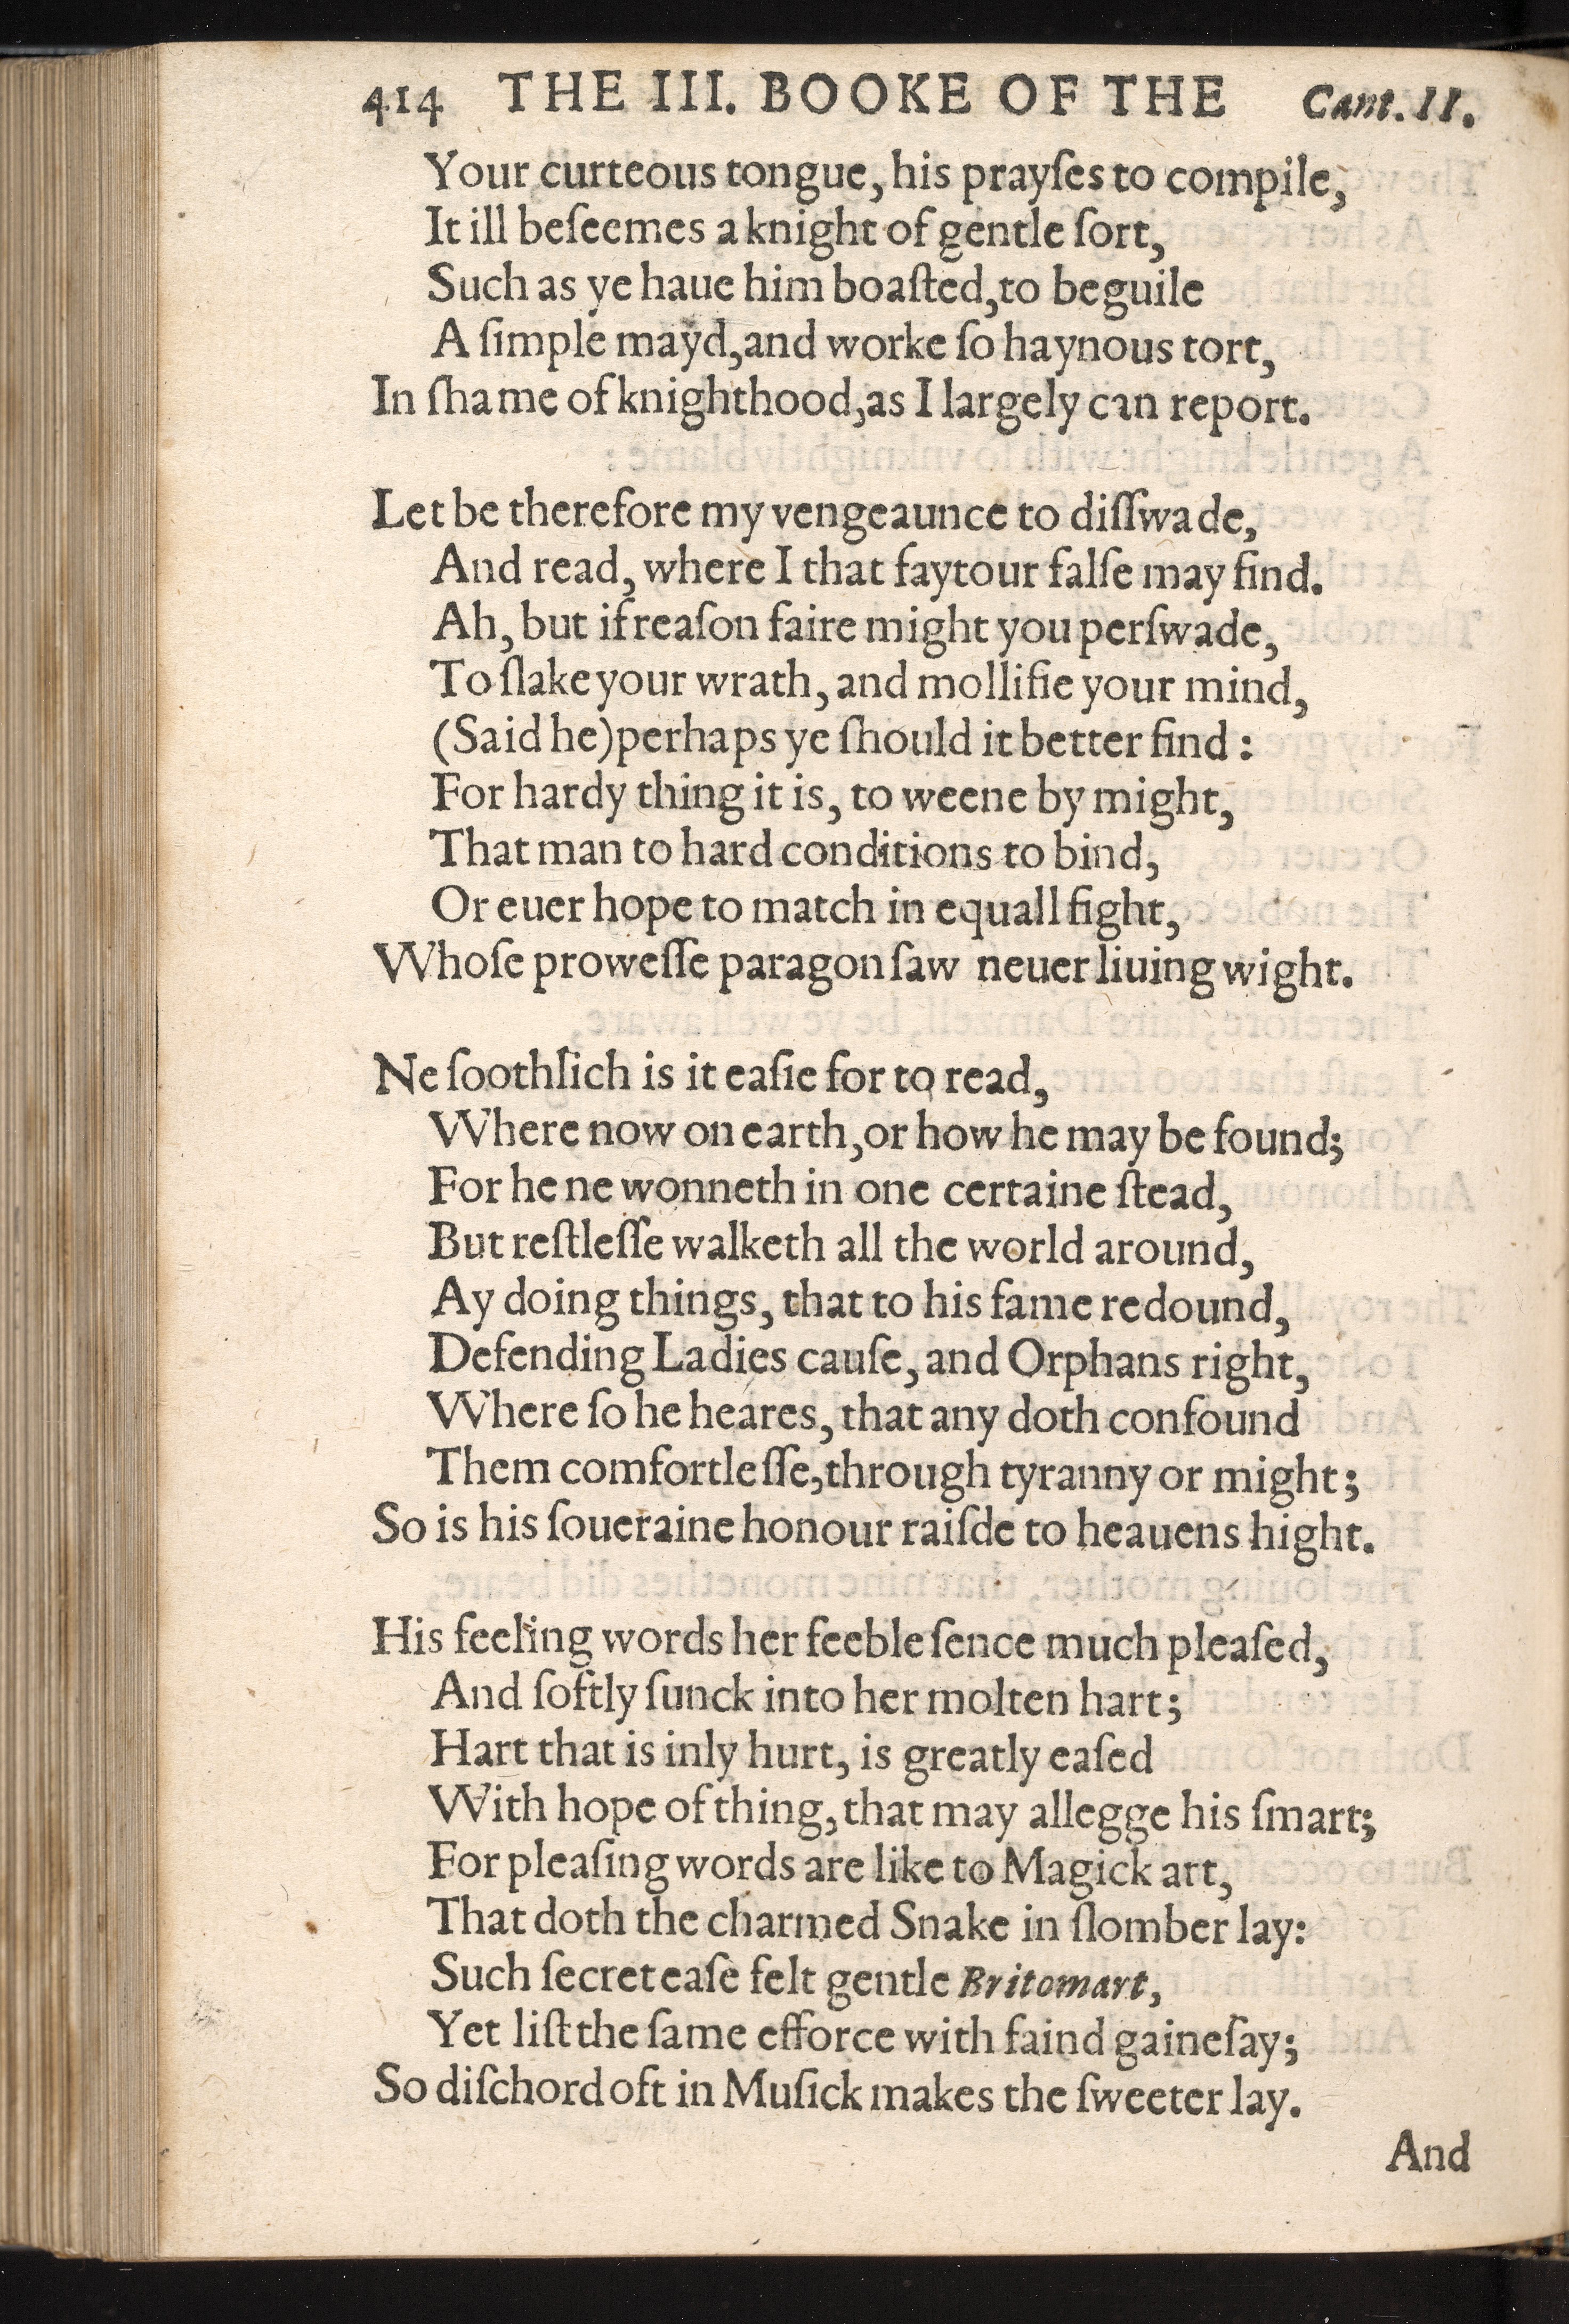 414 THE III. BOOKE OF THE Cant. II.
Your curteous tongue, his prayſes to compile,
It ill beſeemes a knight of gentle ſort,
Such as ye haue him boaſted, to beguile
A ſimple mayd, and worke ſo haynous tort,
In ſhame of knighthood, as I largely can report.
Let be therefore my vengeaunce to diſſwade,
And read, where I that faytour falſe may find.
Ah, but if reaſon faire might you perſwade,
To ſlake your wrath, and mollifie your mind,
(Said he) perhaps ye ſhould it better find:
For hardy thing it is, to weene by might,
That man to hard conditions to bind,
Or euer hope to match in equall fight,
Whoſe proweſſe paragon ſaw neuer liuing wight.
Ne ſoothlich is it eaſie for to read,
Where now on earth, or how he may be found;
For he ne wonneth in one certaine ſtead,
But reſtleſſe walketh all the world around,
Ay doing things, that to his fame redound,
Defending Ladies cauſe, and Orphans right,
Where ſo he heares, that any doth confound
Them comfortleſſe, through tyranny or might;
So is his ſoueraine honour raiſde to heauens hight.
His feeling words her feeble ſence much pleaſed,
And ſoftly ſunck into her molten hart;
Hart that is inly hurt, is greatly eaſed
With hope of thing, that may allegge his ſmart;
For pleaſing words are like to Magick art,
That doth the charmed Snake in ſlomber lay:
Such ſecret eaſe felt gentle Britomart,
Yet liſt the ſame efforce with faind gaineſay;
So diſchord oft in Muſick makes the ſweeter lay.
And